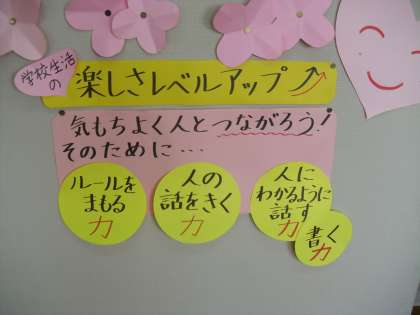 学校生活
の
楽しさレベルアップ
気もちよく人とつながろう!
そのために・・・
ルールを
まもる
力
人の
話をきく
力
人に
わかるように
話す
力
書く
力